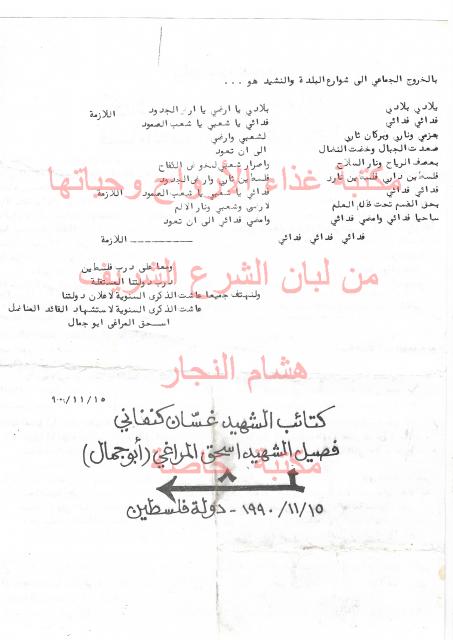 بالخروج الجماعي الى شوارع البلدة والنشيد هو ...
بلادي بلادي بلادي يا ارضي يا ارض الجدود
فدائي فدائي فدائي يا شعبي يا شعب الصمود اللازمة
بعزمي وناري وبركان ثاري لشعبي وارضي
صعدت الجبال وخضت النضال الى ان تعود
بعصف الرياح ونار السلاح واصرار شعبي لخوض الكفاح
فلسطين داري فلسطين ناري فلسطين ثاري وارض الجدود
مكتبة غذاء للأرواح وحياتها
فدائي فدائي فدائي يا شعبي يا شعب الصمود اللازمة
بحق القسم تحت ظل العلم لارضي وشعبي ونار الالم
ساحيا فدائي وامضي فدائي وامضي فدائي الى ان تعود
فدائي فدائي فدائي اللازمة
ومعا على درب فلسطين
درب دولتنا المستقلة
من لبان الشرع الشريف
ولنهتف جميعا عاشت الذكرى السنوية لاعلان دولتنا
عاشت الذكرى السنوية لاستشهاد القائد المناضل
اسحق المراغي ابو جمال
هشام النجار
٩٠/١١/١٥
كتائب الشهيد غسان كنفاني
فصيل الشهيد اسحق المراغي (أبو جمال)
مكتبة خاصة
١٩٩٠/١١/١٥ - دولة فلسطين